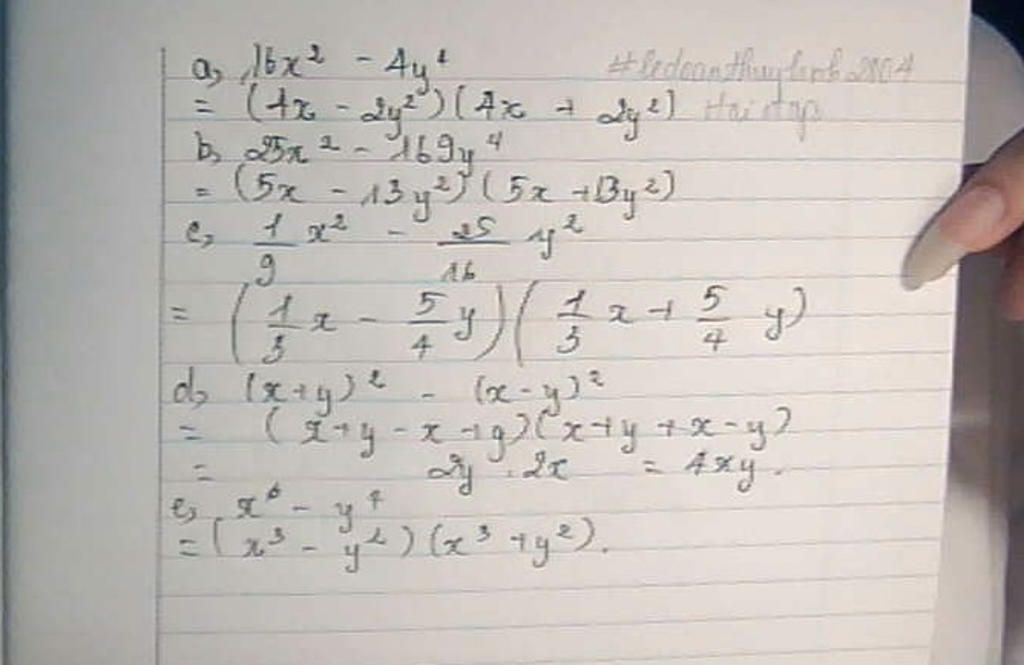 a, 16x² - 4y⁴
= (4x - 2y²)(4x + 2y²)
b, 25x² - 169y⁴
= (5x - 13y²)(5x + 13y²)
c, 1/9 x² - 25/16 y²
= (1/3 x - 5/4 y)(1/3 x + 5/4 y)
d, (x+y)² - (x-y)²
= (x+y - x+y)(x+y + x-y)
= 2y . 2x = 4xy.
e, x⁶ - y⁴
= (x³ - y²)(x³ + y²).